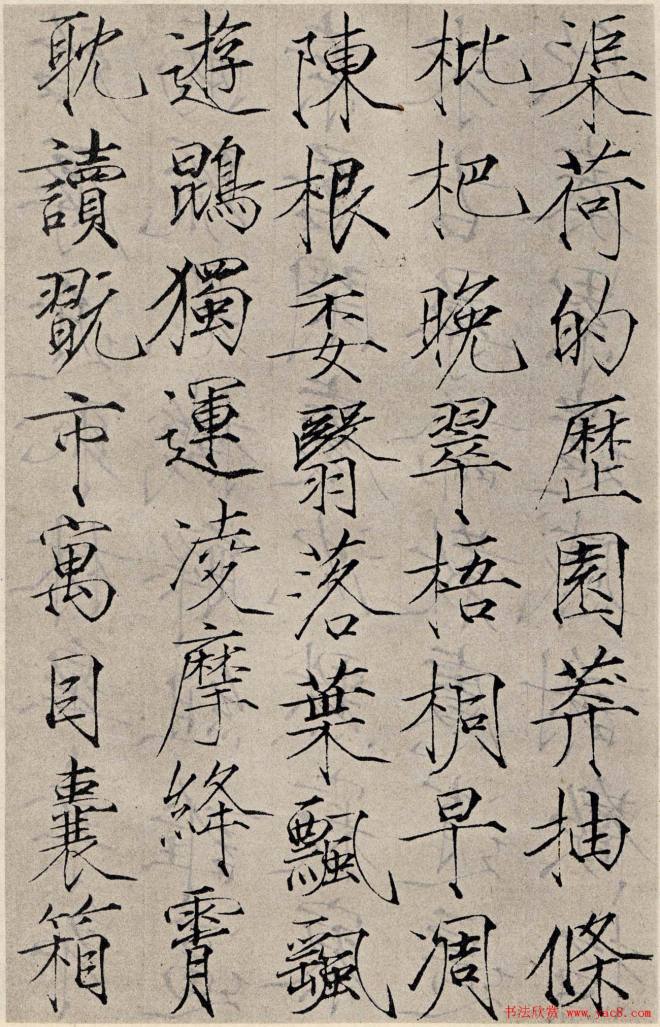 渠荷的歷園莽抽條
枇杷晚翠梧桐早凋
陳根委翳落葉飄颻
遊鵾獨運凌摩絳霄
耽讀翫市寓目囊箱
书法欣赏 www.yac8.com